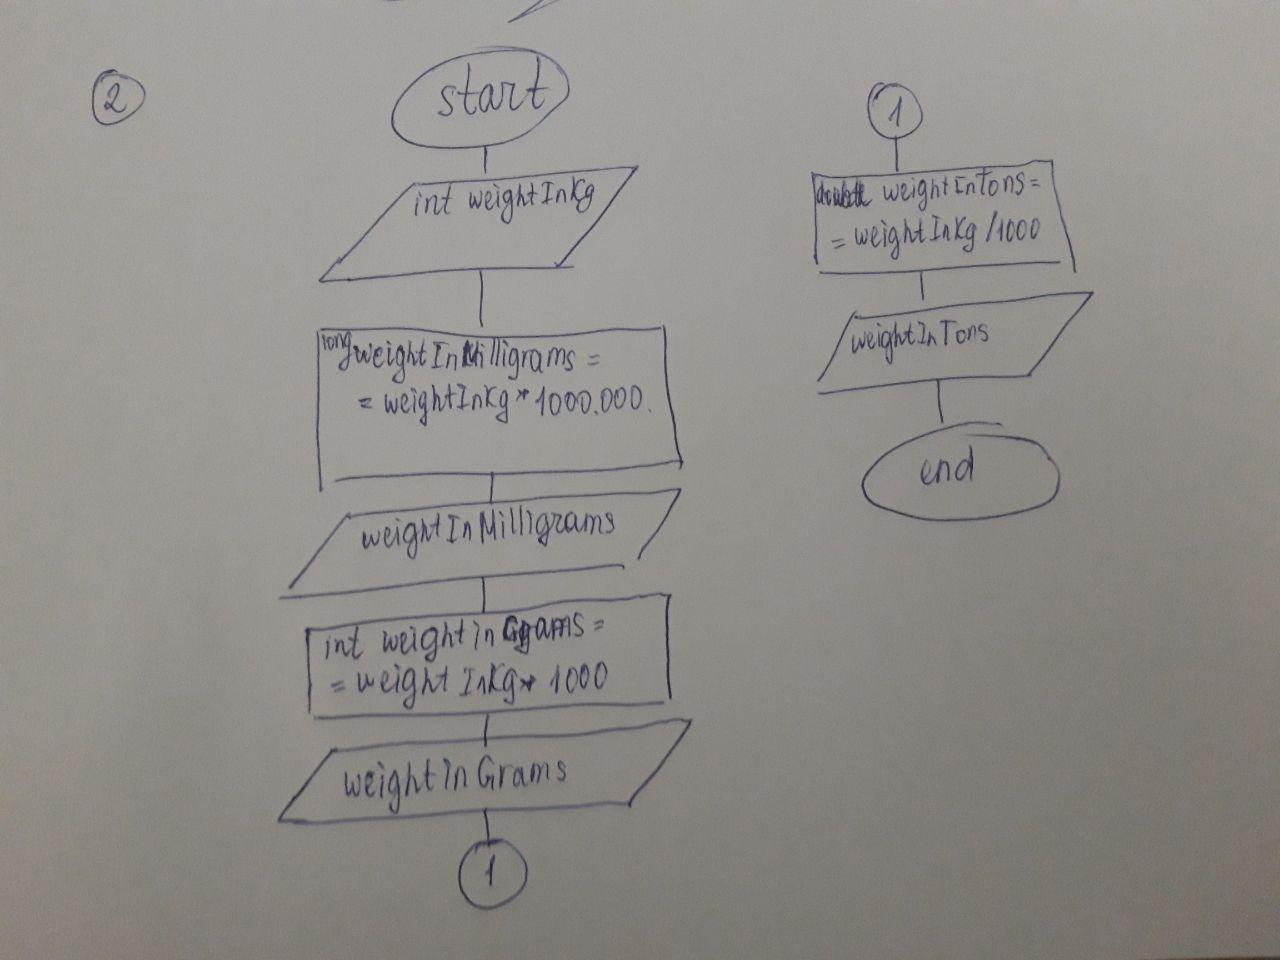 2
start
int weightInKg
long weightInMilligrams =
= weightInKg * 1000.000.
weightInMilligrams
int weightinGrams =
= weightInKg * 1000
weightInGrams
1
1
double weightInTons =
= weightInKg /1000
weightInTons
end